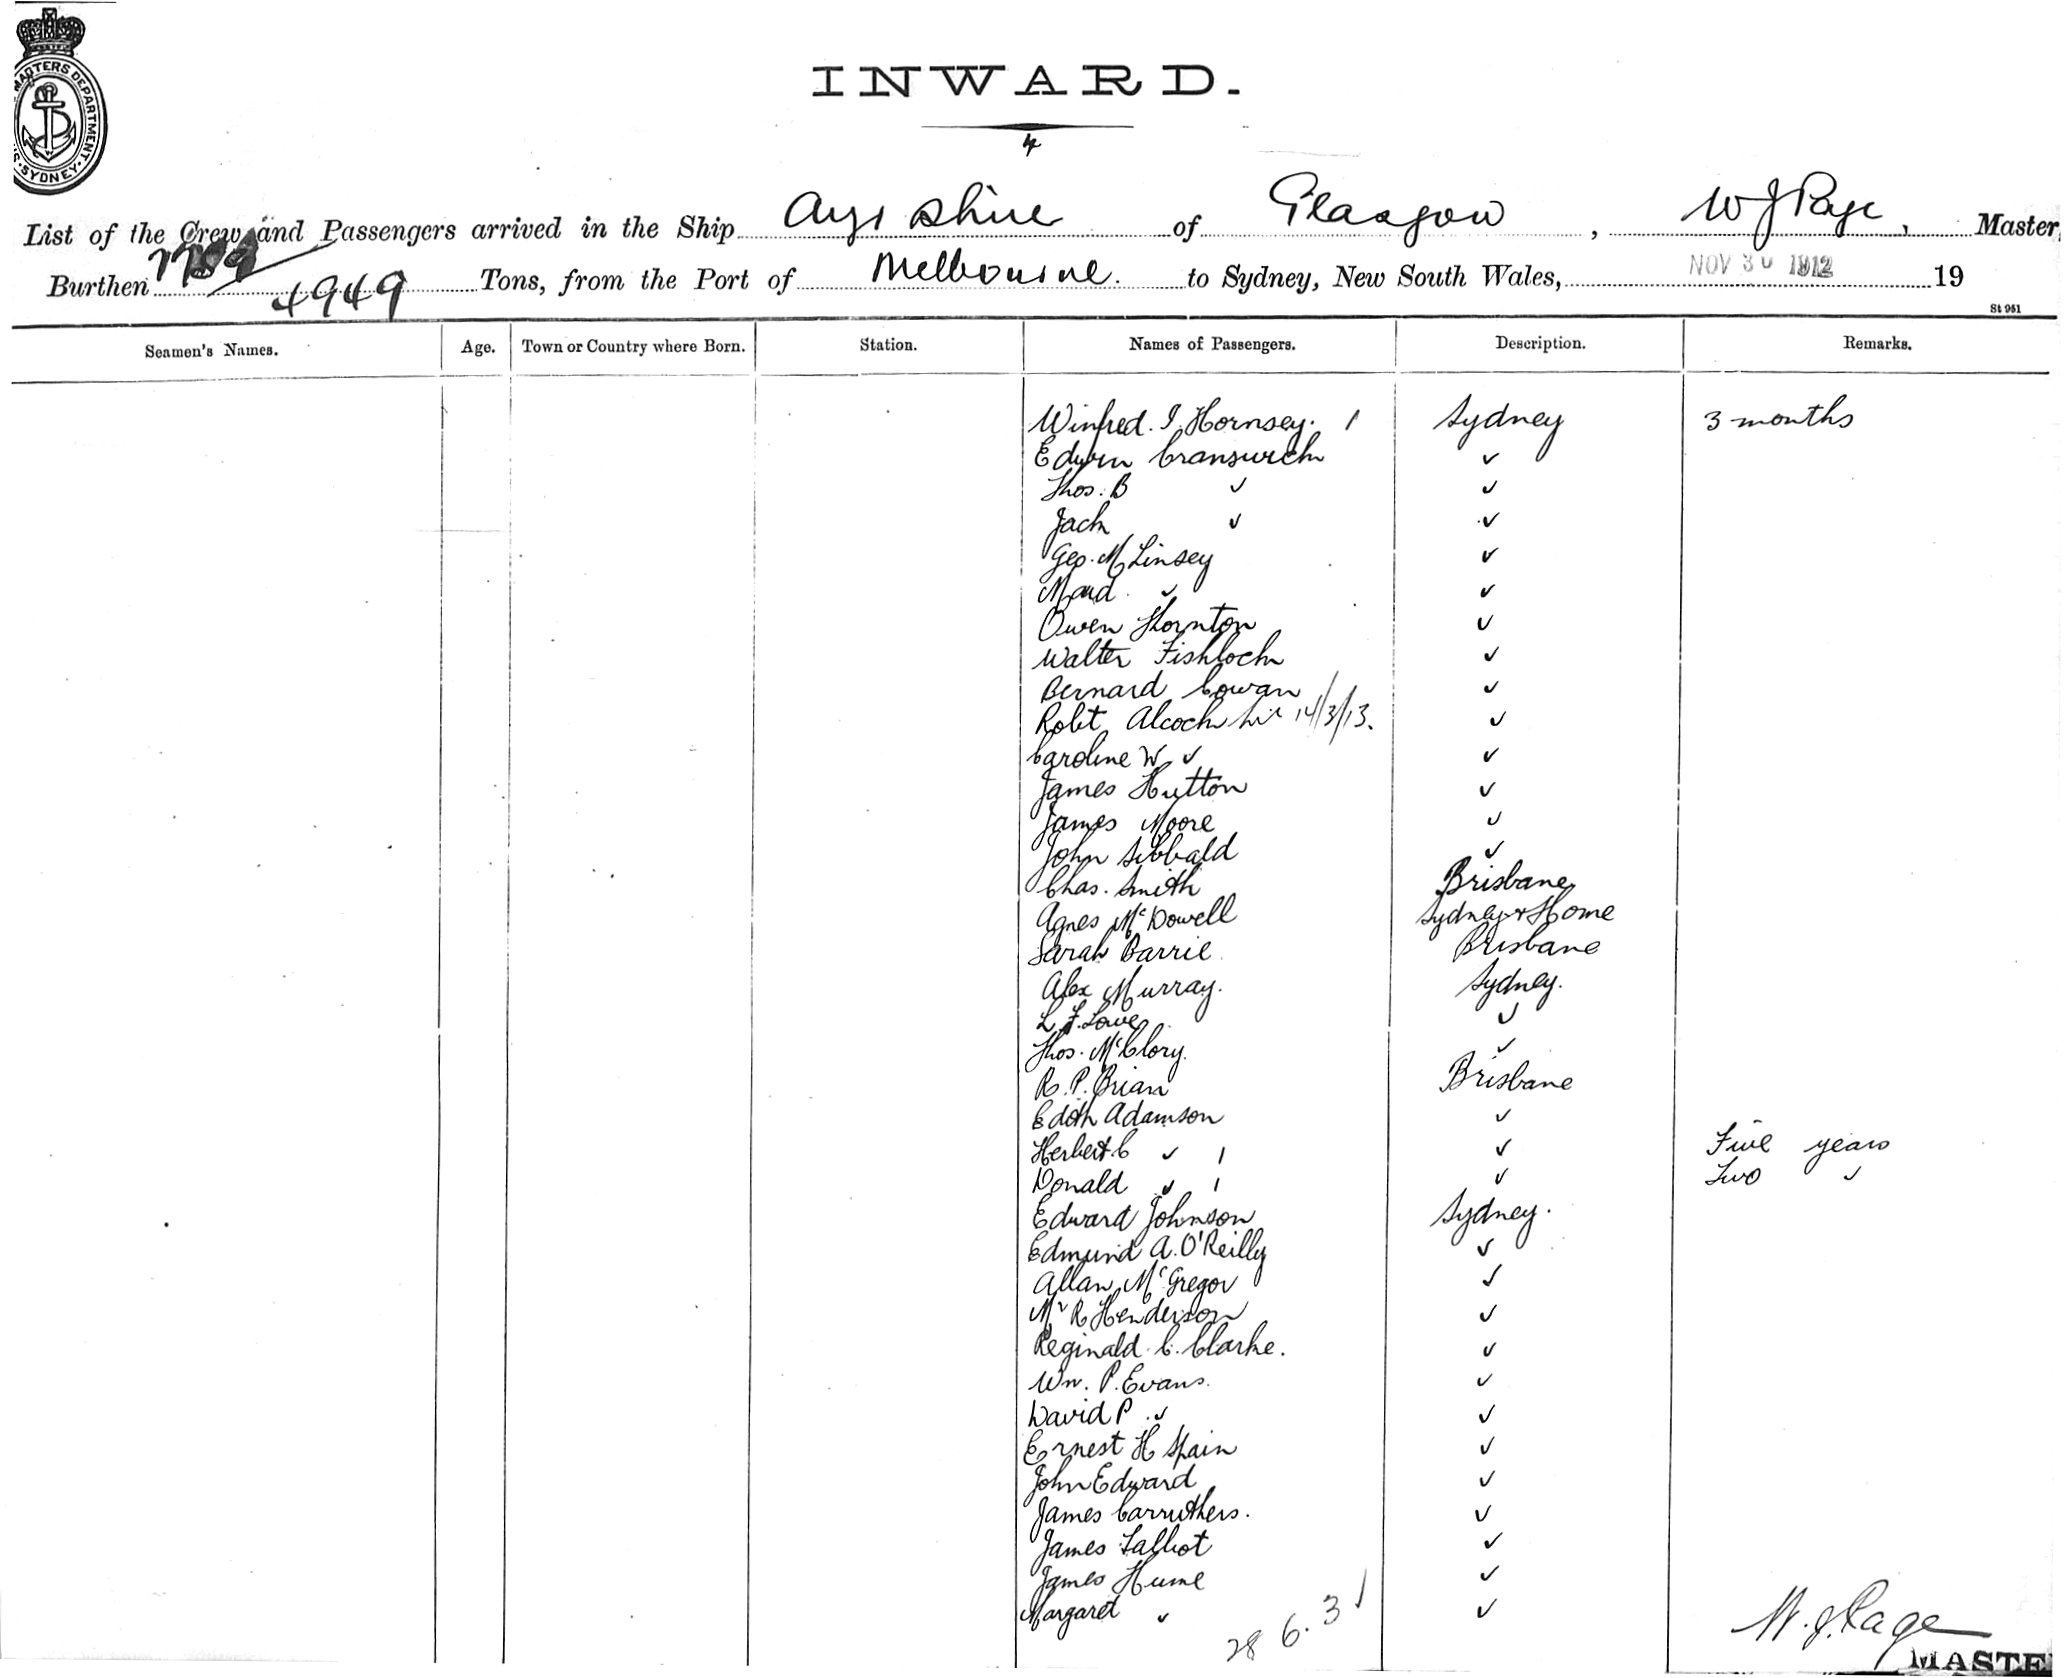 MASTERS DEPARTMENT
SYDNEY
INWARD.
4
List of the Crew and Passengers arrived in the Ship Ayrshire of Glasgow, W J Page, Master,
Burthen 7789 4949 Tons, from the Port of Melbourne. to Sydney, New South Wales, NOV 30 1912 19
St 951
Seamen's Names. Age. Town or Country where Born. Station. Names of Passengers. Description. Remarks.
Winfred. I. Hornsey. 1 Sydney 3 months
Edwin Cranswick ✓
Thos. B ✓ ✓
Jack ✓ ✓
Geo. M Linsey ✓
Maud ✓ ✓
Owen Thornton ✓
Walter Fishlock ✓
Bernard Cowan ✓
Robt Alcock 14/3/13. ✓
Caroline W ✓ ✓
James Hutton ✓
James Moore ✓
John Sibbald ✓
Chas. Smith Brisbane
Agnes McDowell Sydney & Home
Sarah Barrie Brisbane
Alex Murray. Sydney.
L. F. Lowe ✓
Thos. McClory. ✓
R. P. Brian Brisbane
Edith Adamson ✓
Herbert C ✓ 1 ✓ Five years
Donald ✓ 1 ✓ Two ✓
Edward Johnson Sydney.
Edmund A. O'Reilly ✓
Allan McGregor ✓
Mr R Henderson ✓
Reginald C. Clarke. ✓
Wm. P. Evans. ✓
David P ✓ ✓
Ernest H Spain ✓
John Edward ✓
James Carruthers. ✓
James Talbot ✓
James Hume ✓
Margaret ✓ ✓
28 6. 3 1
W. J. Page
MASTE